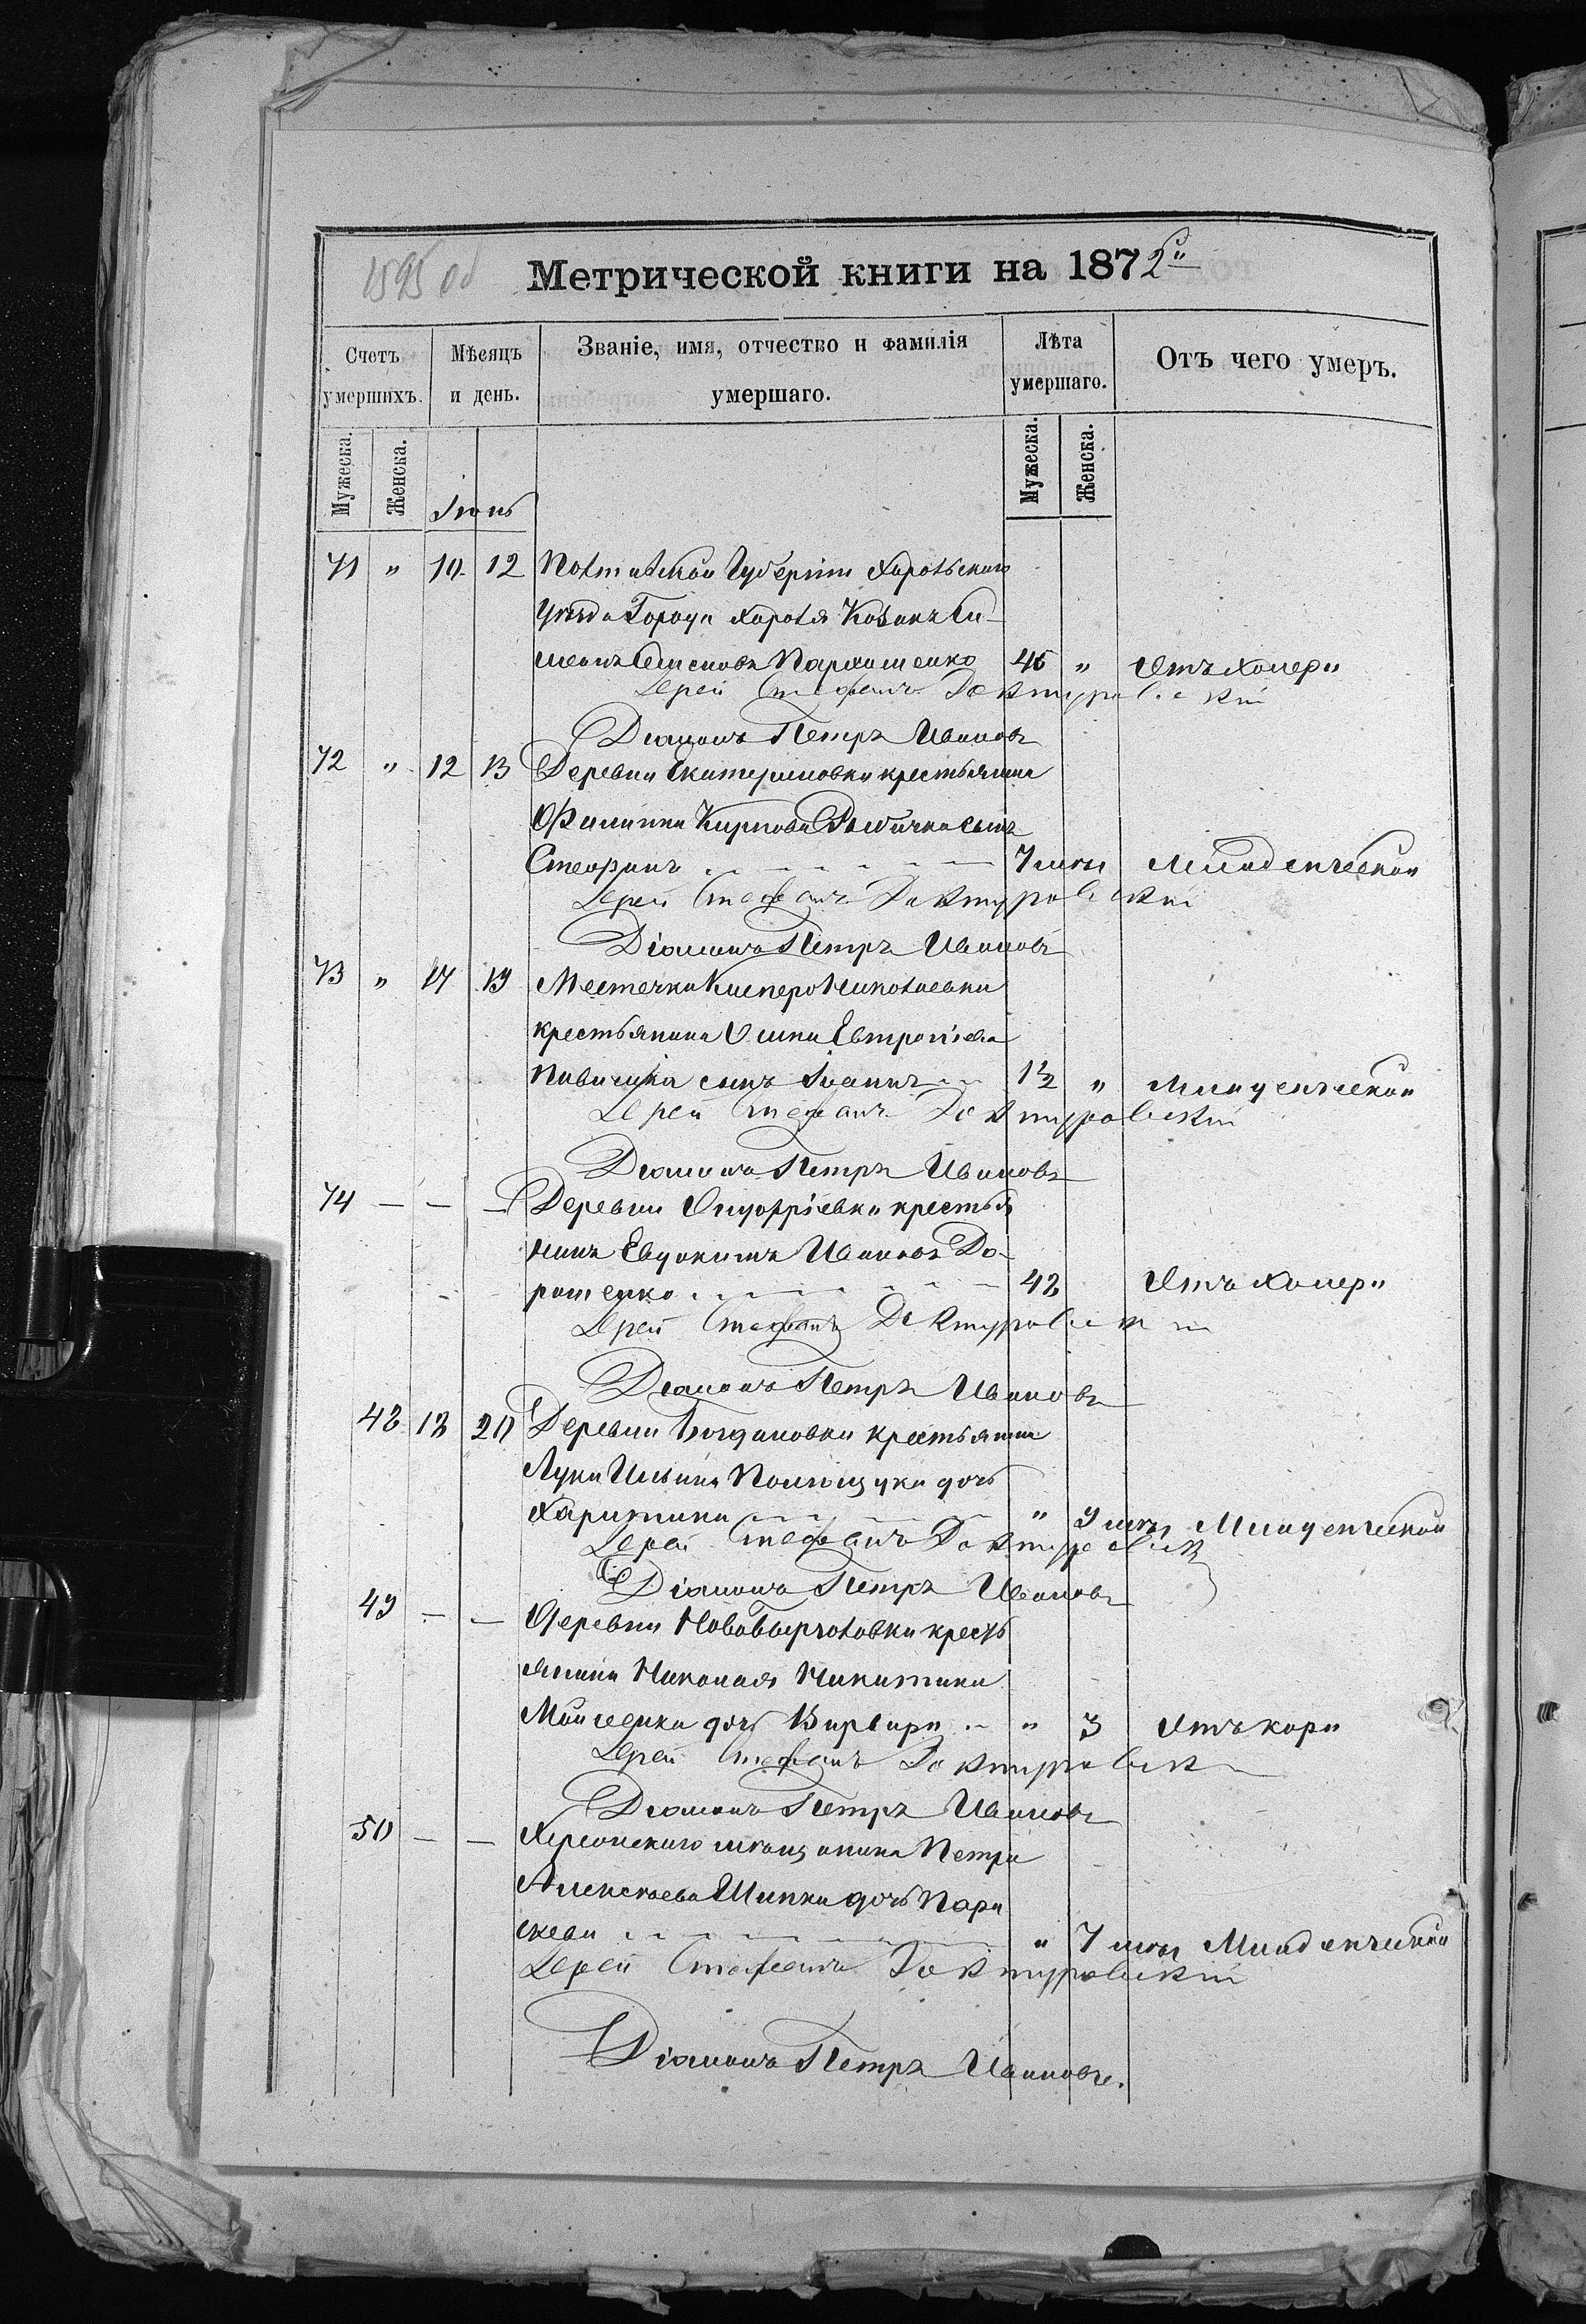 1595 об
Метрической книги на 1872 г.
Счетъ умершихъ.
Мѣсяцъ и день.
Званіе, имя, отчество и фамилія умершаго.
Лѣта умершаго.
Отъ чего умеръ.
Мужеска.
Женска.
Іюнь
Мужеска.
Женска.
71 " 10 12 Полтавской Губерніи Хорольскаго
уѣзда Города Хороля Козакъ Си-
меонъ Семеновъ Пархоменко 45 " Отъ холеры
Іерей Стефанъ Доктуровскій
Діаконъ Петръ Ивановъ
72 " 12 13 Деревни Екатериновки крестьянина
Филиппа Карпова сынъ
Стефанъ 7 мсцы Младенческой
Іерей Стефанъ Доктуровскій
Діаконъ Петръ Ивановъ
73 " 17 19 Местечка Касперо Николаевки
крестьянина Осипа Евтропіева
сынъ Іоаннъ 1½ " Младенческой
Іерей Стефанъ Доктуровскій
Діаконъ Петръ Ивановъ
74 — — — Деревни Онуфріевки крестья
нинъ Евдокимъ Ивановъ До-
рошенко 42 Отъ холеры
Іерей Стефанъ Доктуровскій
Діаконъ Петръ Ивановъ
48 18 20 Деревни Богдановки крестьянина
Луки Ильина Полищука дочь
Харитина " 9 мсцы Младенческой
Іерей Стефанъ Доктуровскій
Діаконъ Петръ Ивановъ
49 — — Деревни кресть
янина Николая Никитина
Мойсеенка дочь Варвара " 3 Отъ кори
Іерей Стефанъ Доктуровскій
Діаконъ Петръ Ивановъ
50 — — Херсонскаго мѣщанина Петра
Алексѣева Шапки дочь Пара
скева " 7 мсцы Младенческой
Іерей Стефанъ Доктуровскій
Діаконъ Петръ Ивановъ.